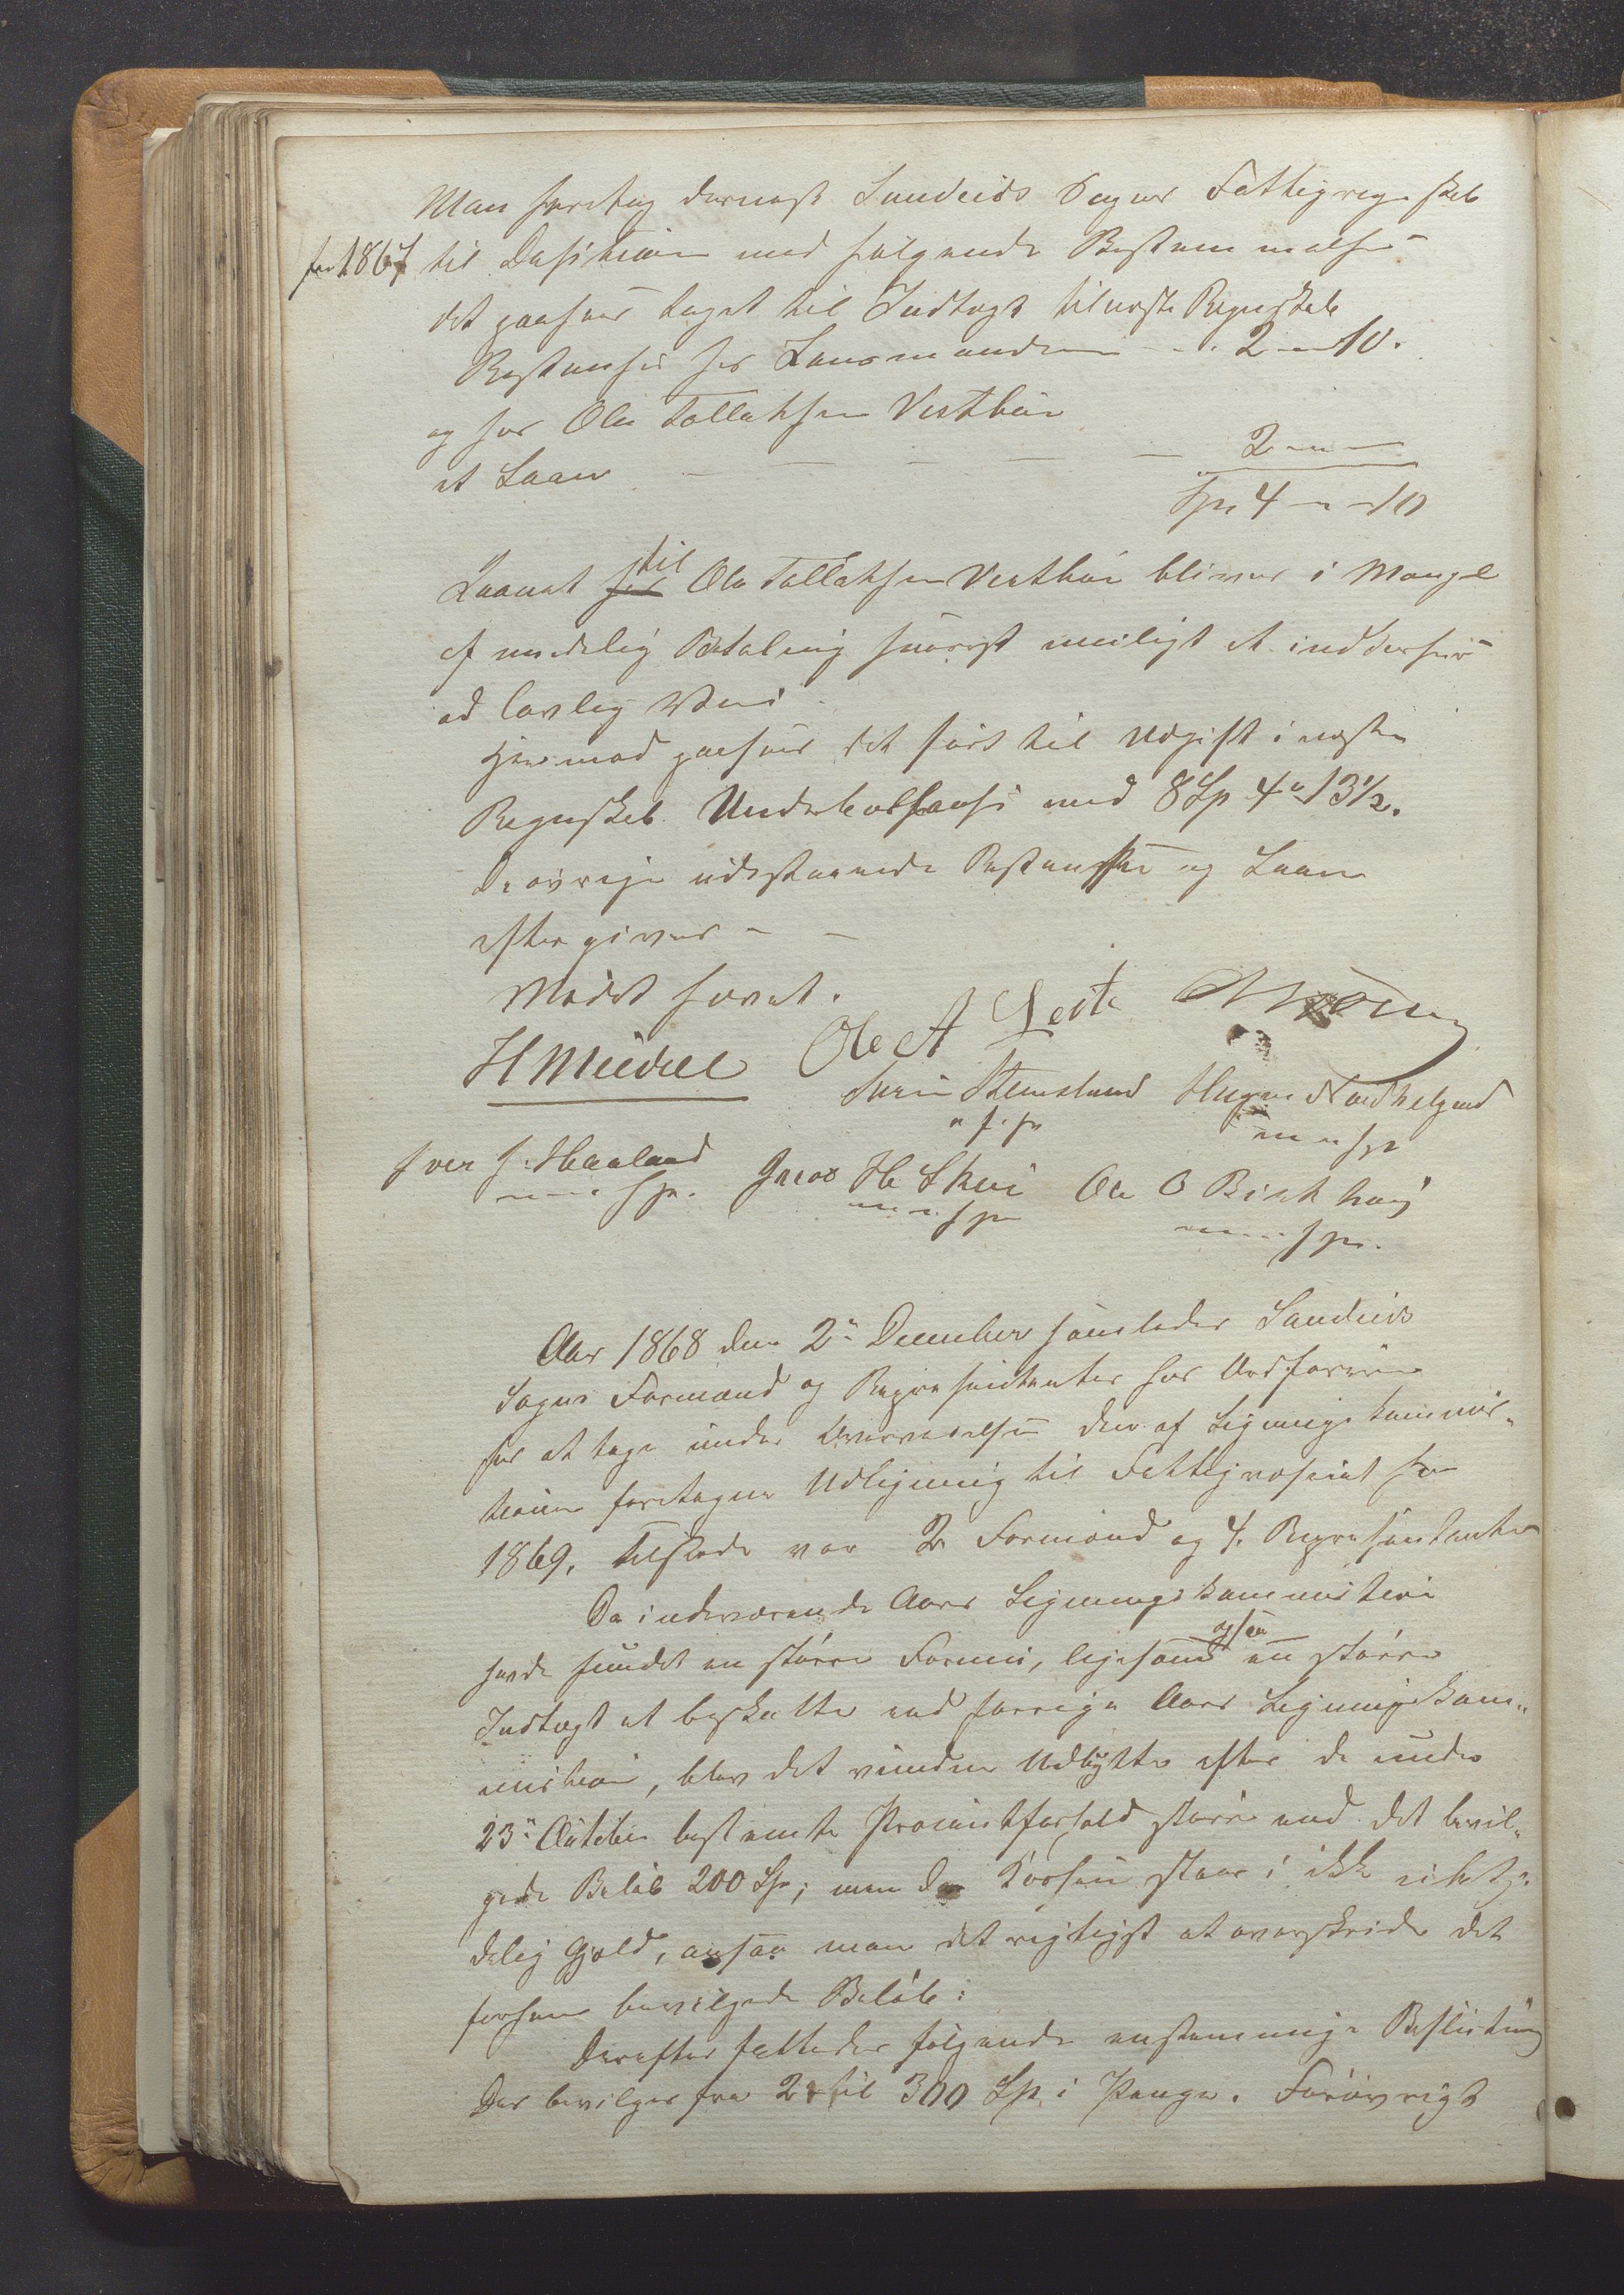 Man foretog dernæst Sandeids Sogns Fattigregnskab
for 1867 til Desision med følgende Bestemmelse
det paasees taget til Indtægt til næste Regnskab
Restanse hos Lensmanden - - - 2 - " 10.
og hos Ole Tollaksen Vestbøe
et Laan - - - - - 2 - " -
Spd 4 - " - 10
Laanet hos til Ole Tollaksen Vestbøe bliver i Mangel
af mindelig Betaling snarest muligt at inddrive
ad lovlig Vei.
Hermod paasees det ført til Udgift i næste
Regnskab Underballanse med 8 Sp 4 " 13½.
De øvrige udestaaende Restanser og Laan
eftergives - -
Mødet hævet.
H Meidell Ole A Leite
Sven Stemsland Hagen Nordhelgend
m. f. p. m. f. p.
Iver J. Haaland Jacob H Skeie Ole O Birkhaug
m. f. p. m. f. p. m. f. p.
Aar 1868 den 2den December samledes Sandeids
Sogns Formænd og Representanter hos Ordføreren
for at tage under Overveielse den af Ligningskommis-
tionen foretagne Udligning til Fattigvæsenet for
1869. Tilstede var 2 Formænd og 4 Repræsentanter
Da indeværende Aars Ligningskommistion
havde fundet en større Formue, ligesom ogsaa en større
Indtægt at beskatte end forrige Aars Ligningskom-
mistion, blev det vundne Udbytte efter de under
23de October bestemte Procentforhold større end det bevil-
gede Beløb 200 Sp; men da Kassen staar i ikke ubety-
delig Gjæld, ansaa man det rigtigst at overskride det
forhen bevilgede Beløb:
Derefter fattedes følgende enstemmige Beslutning
Der bevilges fra 2 til 300 Sp i Penge. Forøvrigt